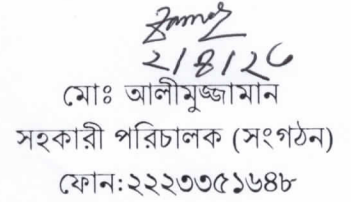 ২/৪/২৫
মোঃ আলীমুজ্জামান
সহকারী পরিচালক (সংগঠন)
ফোন:২২২৩৩৫১৬৪৮